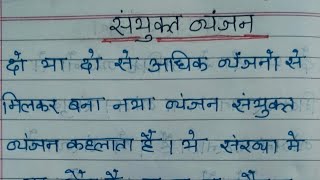 संयुक्त व्यंजन
दो या दो से अधिक व्यंजनो से
मिलकर बना नया व्यंजन संयुक्त
व्यंजन कहलाता हैं । ये संख्या मे